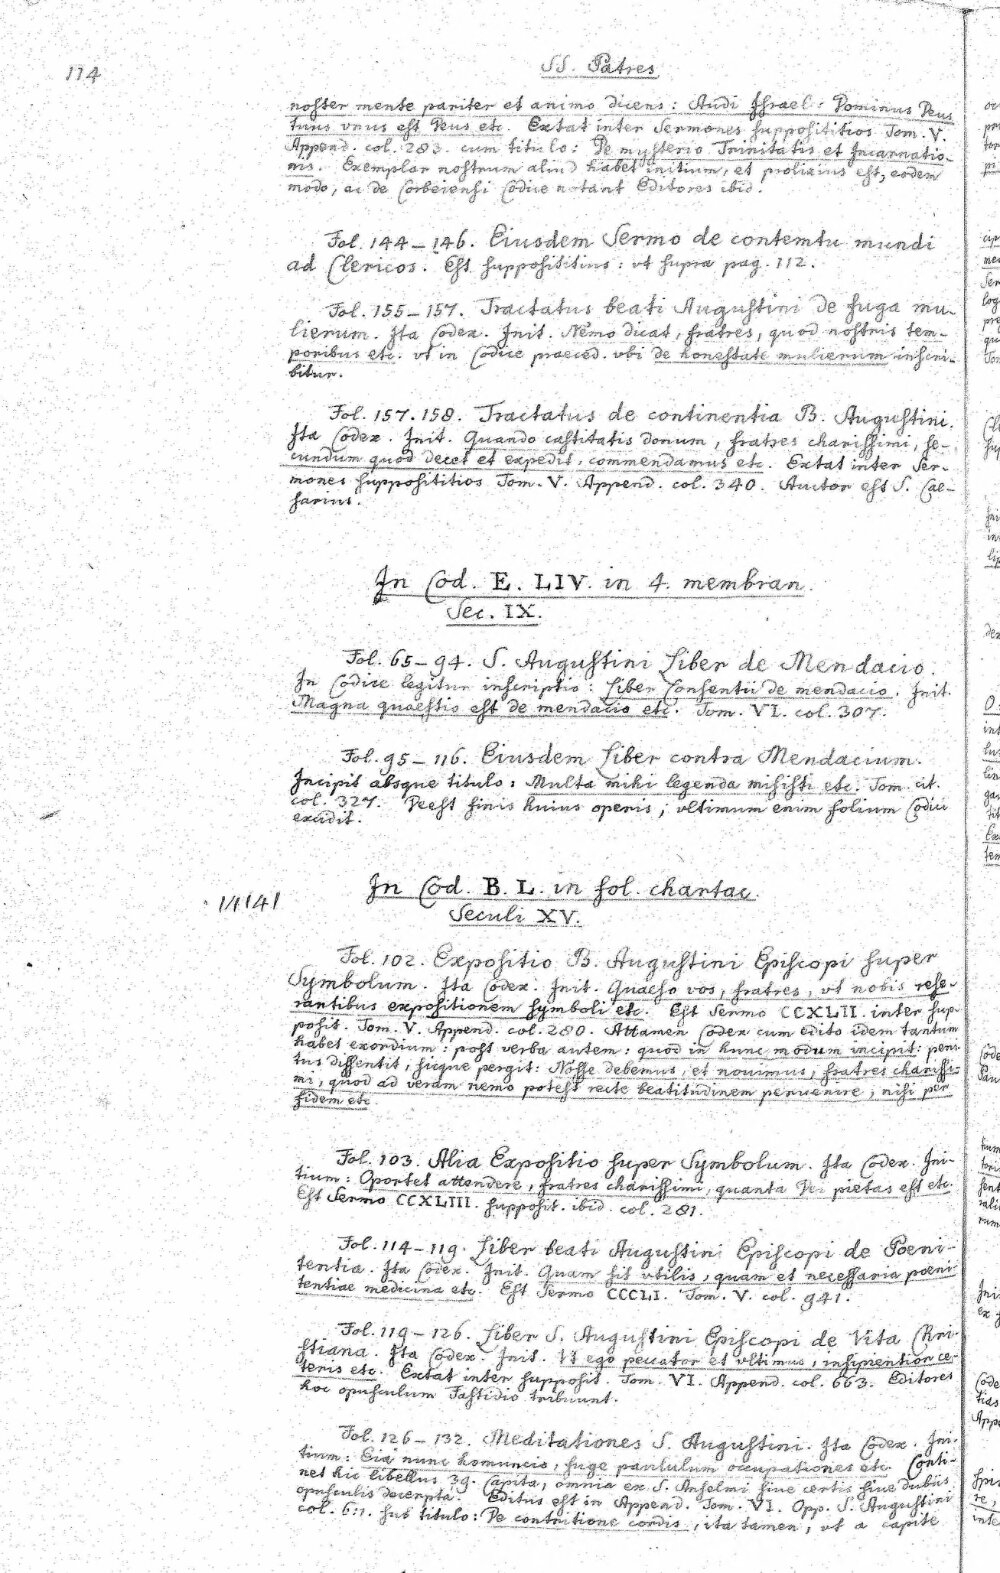 114
SS. Patres
noster mente pariter et animo dicens: Audi Israel: Dominus Deus
tuus unus est Deus etc. Extat inter Sermones supposititios Tom. V.
Append. col. 283. cum titulo: De mysterio Trinitatis et Incarnatio-
nis. Exemplar nostrum aliud habet initium, et prolixius est, eodem
modo, ac de Corbeiensi Codice notant Editores ibid.
Fol. 144–146. Eiusdem Sermo de contemtu mundi
ad Clericos. Est supposititius: vt supra pag. 112.
Fol. 155–157. Tractatus beati Augustini de fuga mu-
lierum. Ita Codex. Init. Nemo dicat, fratres, quod nostris tem-
poribus etc. vt in Codice praeced. vbi de honestate mulierum inscri-
bitur.
Fol. 157.158. Tractatus de continentia B. Augustini.
Ita Codex. Init. Quando castitatis donum, fratres charissimi, se-
cundum quod decet et expedit, commendamus etc. Extat inter Ser-
mones supposititios Tom. V. Append. col. 340. Auctor est S. Cae-
sarius.
In Cod. E. LIV. in 4. membran.
Sec. IX.
Fol. 65–94. S. Augustini Liber de Mendacio.
In Codice legitur inscriptio: Liber Consentii de mendacio. Init.
Magna quaestio est de mendacio etc. Tom. VI. col. 307.
Fol. 95–116. Eiusdem Liber contra Mendacium.
Incipit absque titulo: Multa mihi legenda misisti etc. Tom. cit.
col. 327. Deest finis huius operis, vltimum enim folium Codici
excidit.
In Cod. B. L. in fol. chartac.
Seculi XV.
Fol. 102. Expositio B. Augustini Episcopi super
Symbolum. Ita Codex. Init. Quaeso vos, fratres, vt nobis rese-
rantibus expositionem symboli etc. Est Sermo CCXLII. inter sup-
posit. Tom. V. Append. col. 280. Attamen Codex cum edito idem tantum
habet exordium: post verba autem: quod in hunc modum incipit: peni-
tus dissentit, sicque pergit: Nosse debemus, et nouimus, fratres charissi-
mi, quod ad veram nemo potest recte beatitudinem peruenire, nisi per
fidem etc.
Fol. 103. Alia Expositio super Symbolum. Ita Codex. Ini-
tium: Oportet attendere, fratres charissimi, quanta Dei pietas est etc.
Est Sermo CCXLIII. supposit. ibid. col. 281.
Fol. 114–119. Liber beati Augustini Episcopi de Poeni-
tentia. Ita Codex. Init. Quam sit vtilis, quam et necessaria poeni-
tentiae medicina etc. Est Sermo CCCLI. Tom. V. col. 941.
Fol. 119–126. Liber S. Augustini Episcopi de Vita Chri-
stiana. Ita Codex. Init. Vt ego peccator et vltimus, insipientior ce-
teris etc. Extat inter supposit. Tom. VI. Append. col. 663. Editores
hoc opusculum Fastidio tribuunt.
Fol. 126–132. Meditationes S. Augustini. Ita Codex. Ini-
tium: Eia nunc homuncio, fuge paululum occupationes etc. Conti-
net hic libellus 39. Capita, omnia ex S. Anselmi siue certis siue dubiis
opusculis decerpta. Editus est in Append. Tom. VI. Opp. S. Augustini
col. sub titulo: De contritione cordis, ita tamen, vt a capite